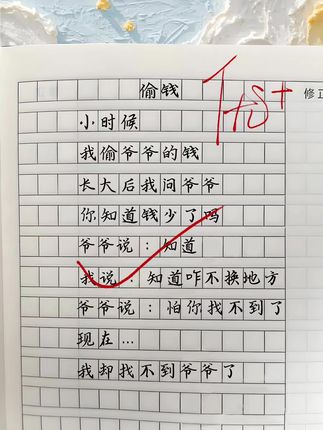 偷钱
修正
小时候
我偷爷爷的钱
长大后我问爷爷
你知道钱少了吗
爷爷说：知道
我说：知道咋不换地方
爷爷说：怕你找不到了
现在…
我却找不到爷爷了